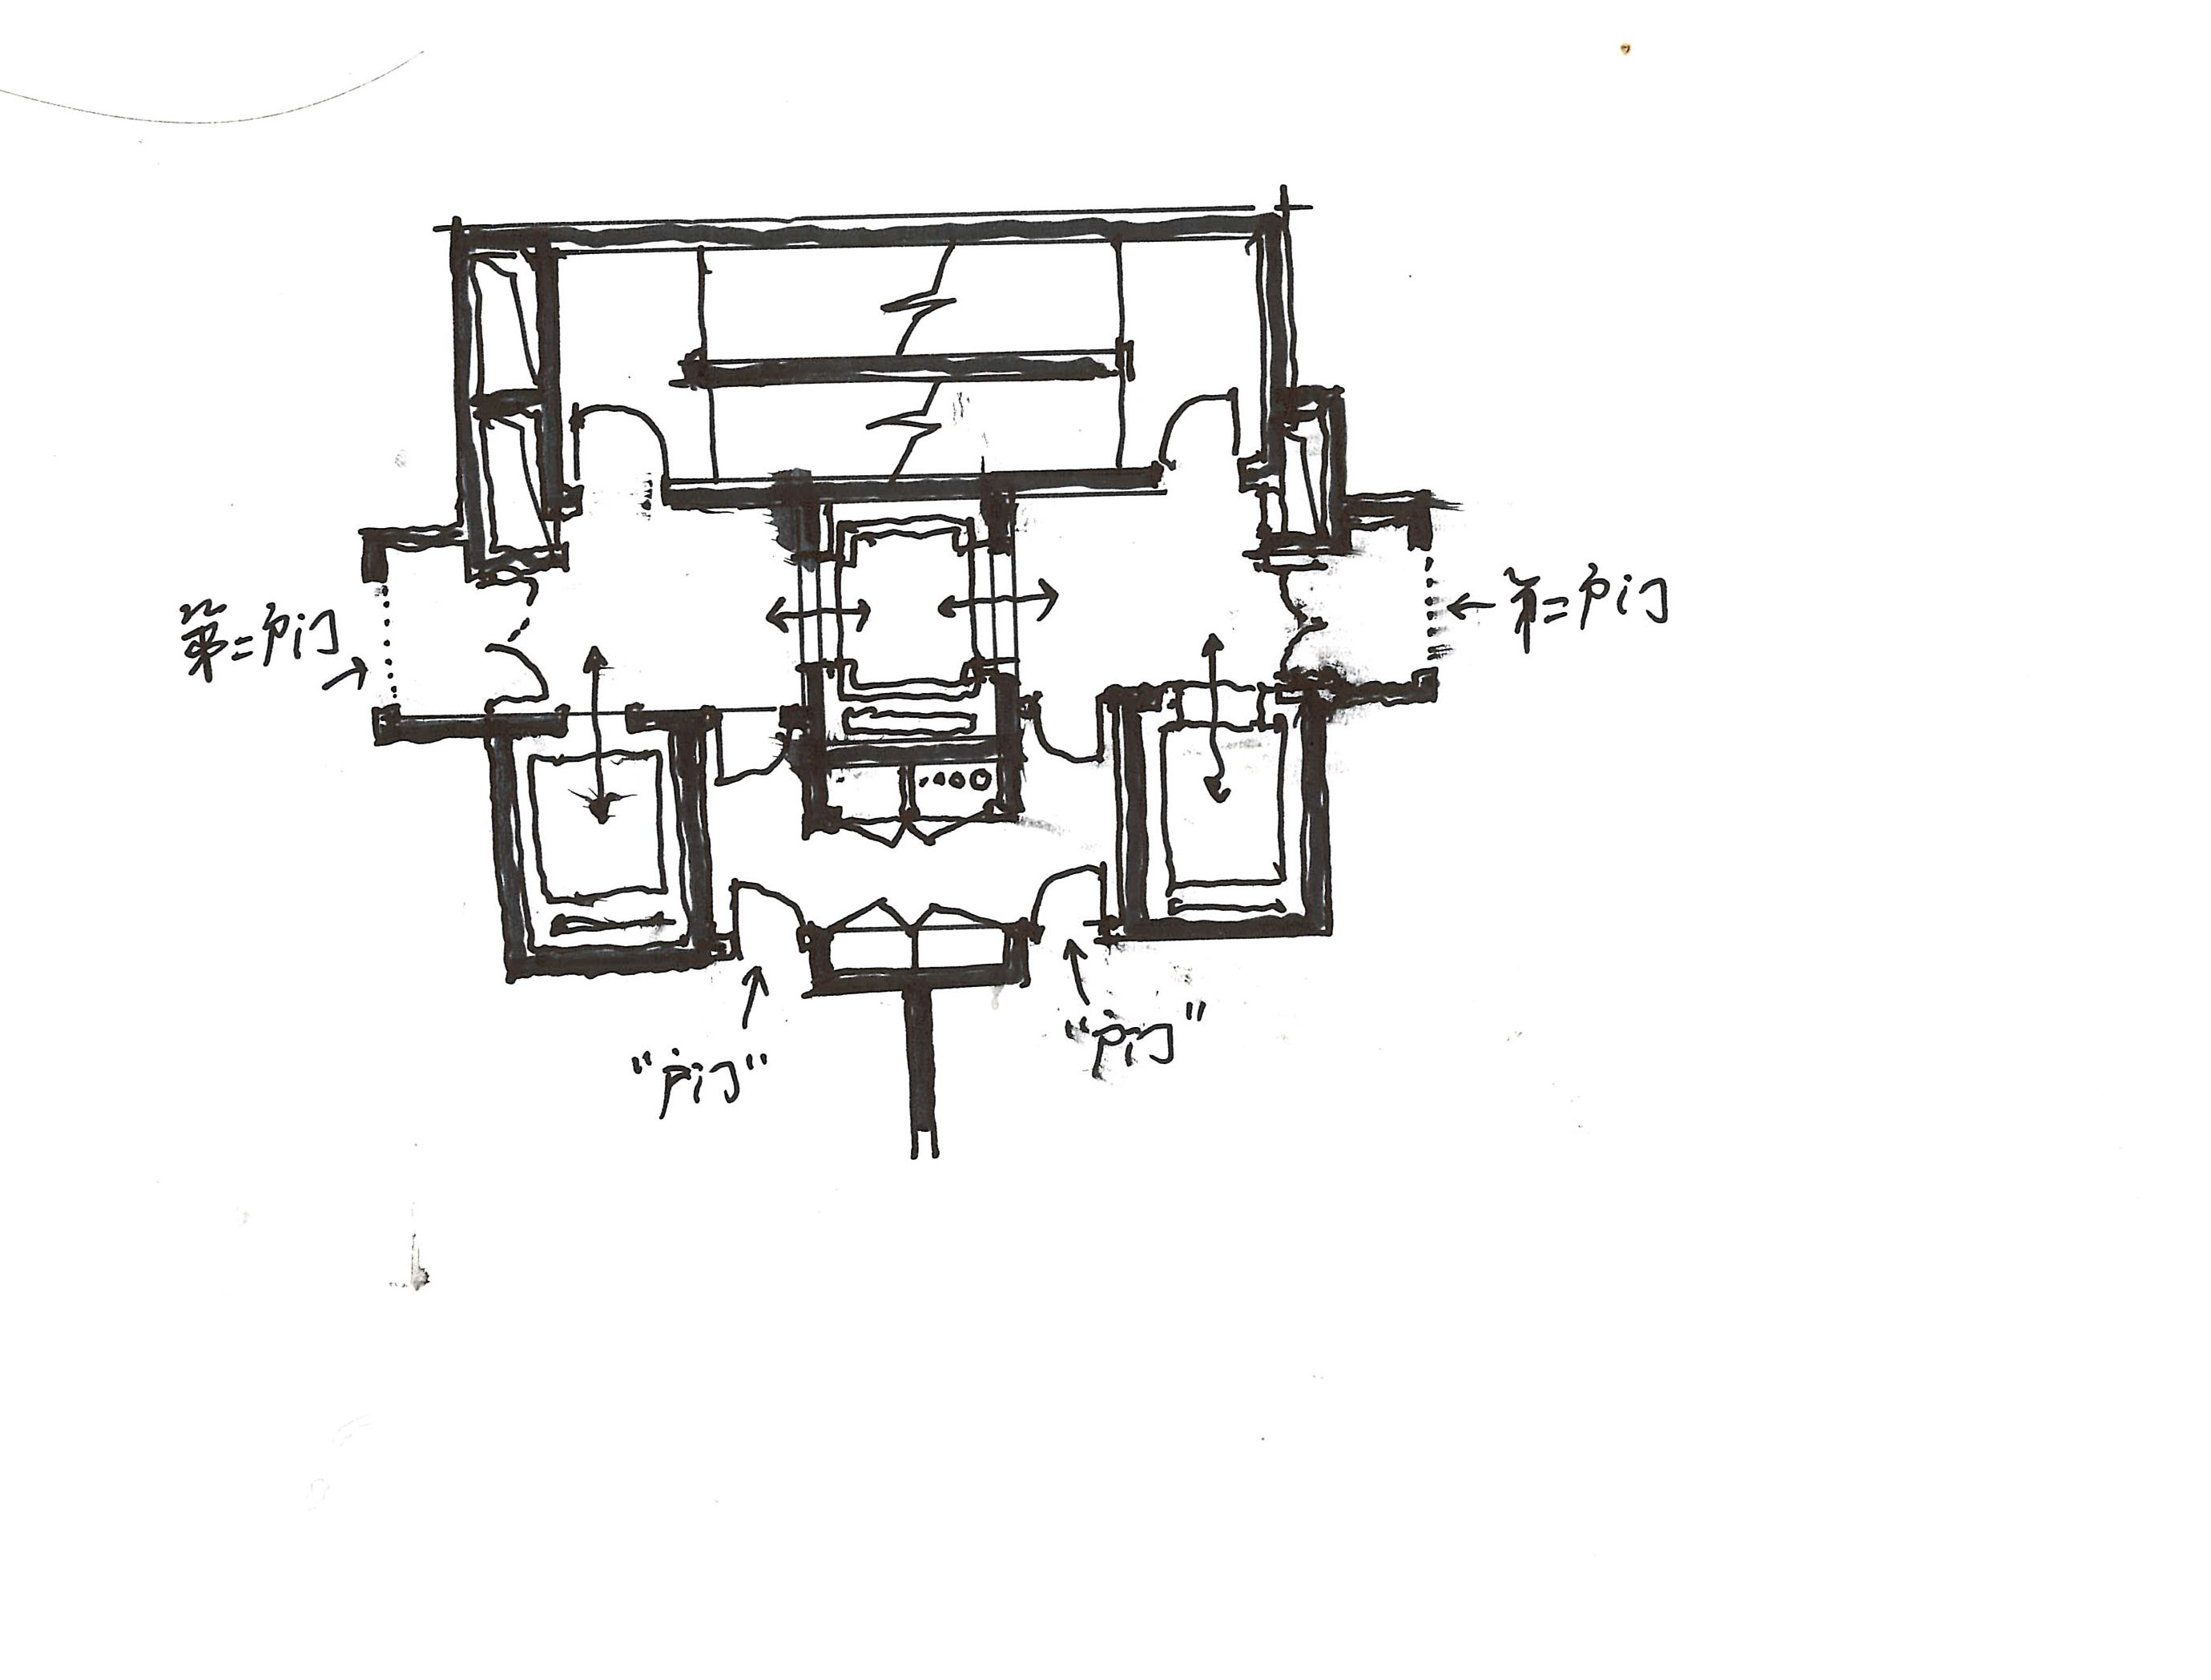 第二户门
第二户门
"户门"
"户门"